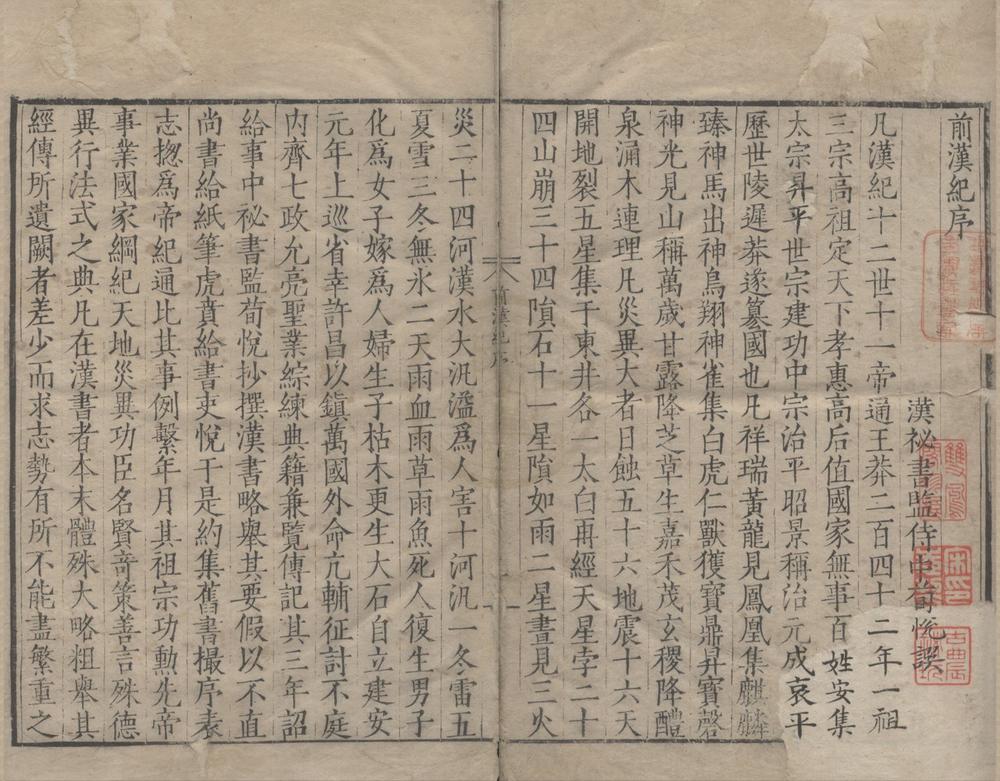 前漢紀序
漢祕書監侍中荀悅譔
凡漢紀十二世十一帝通王莽二百四十二年一祖
三宗高祖定天下孝惠高后值國家無事百姓安集
太宗昇平世宗建功中宗治平昭景稱治元成哀平
歷世陵遲莽遂篡國也凡祥瑞黃龍見鳳凰集麒麟
臻神馬出神鳥翔神雀集白虎仁獸獲寶鼎昇寶磬
神光見山稱萬歲甘露降芝草生嘉禾茂玄稷降醴
泉涌木連理凡災異大者日蝕五十六地震十六天
開地裂五星集于東井各一太白再經天星孛二十
四山崩三十四隕石十一星隕如雨二星晝見三火
災二十四河漢水大汎溢為人害十河汎一冬雷五
夏雪三冬無氷二天雨血雨草雨魚死人復生男子
化為女子嫁爲人婦生子枯木更生大石自立建安
元年上巡省幸許昌以鎭萬國外命亢輔征討不庭
內齊七政允亮聖業綜練典籍兼覽傳記其三年詔
給事中祕書監荀悅抄撰漢書略舉其要假以不直
尚書給紙筆虎賁給書吏悅于是約集舊書撮序表
志揔爲帝紀通比其事例繫年月其祖宗功勳先帝
事業國家綱紀天地災異功臣名賢竒策善言殊德
異行法式之典凡在漢書者本末體殊大略粗舉其
經傳所遺闕者差少而求志勢有所不能盡繁重之
前漢紀序
一